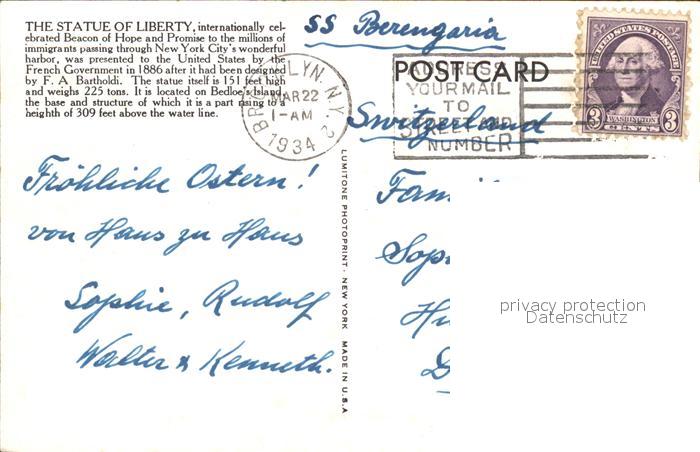 THE STATUE OF LIBERTY, internationally cel-
ebrated Beacon of Hope and Promise to the millions of
immigrants passing through New York City's wonderful
harbor, was presented to the United States by the
French Government in 1886 after it had been designed
by F. A. Bartholdi. The statue itself is 151 feet high
and weighs 225 tons. It is located on Bedloe's Island,
the base and structure of which it is a part rising to a
heighth of 309 feet above the water line.
SS Berengaria
POST CARD
Switzerland
BROOKLYN, N.Y. 2
MAR 22
1-AM
1934
ADDRESS
YOUR MAIL
TO
STREET AND
NUMBER
UNITED STATES POSTAGE
3 WASHINGTON 3
CENTS
Fröhliche Ostern!
von Haus zu Haus
Sophie, Rudolf
Walter & Kenneth.
LUMITONE PHOTOPRINT · NEW YORK MADE IN U.S.A
Fam
Sop
privacy protection
Datenschutz